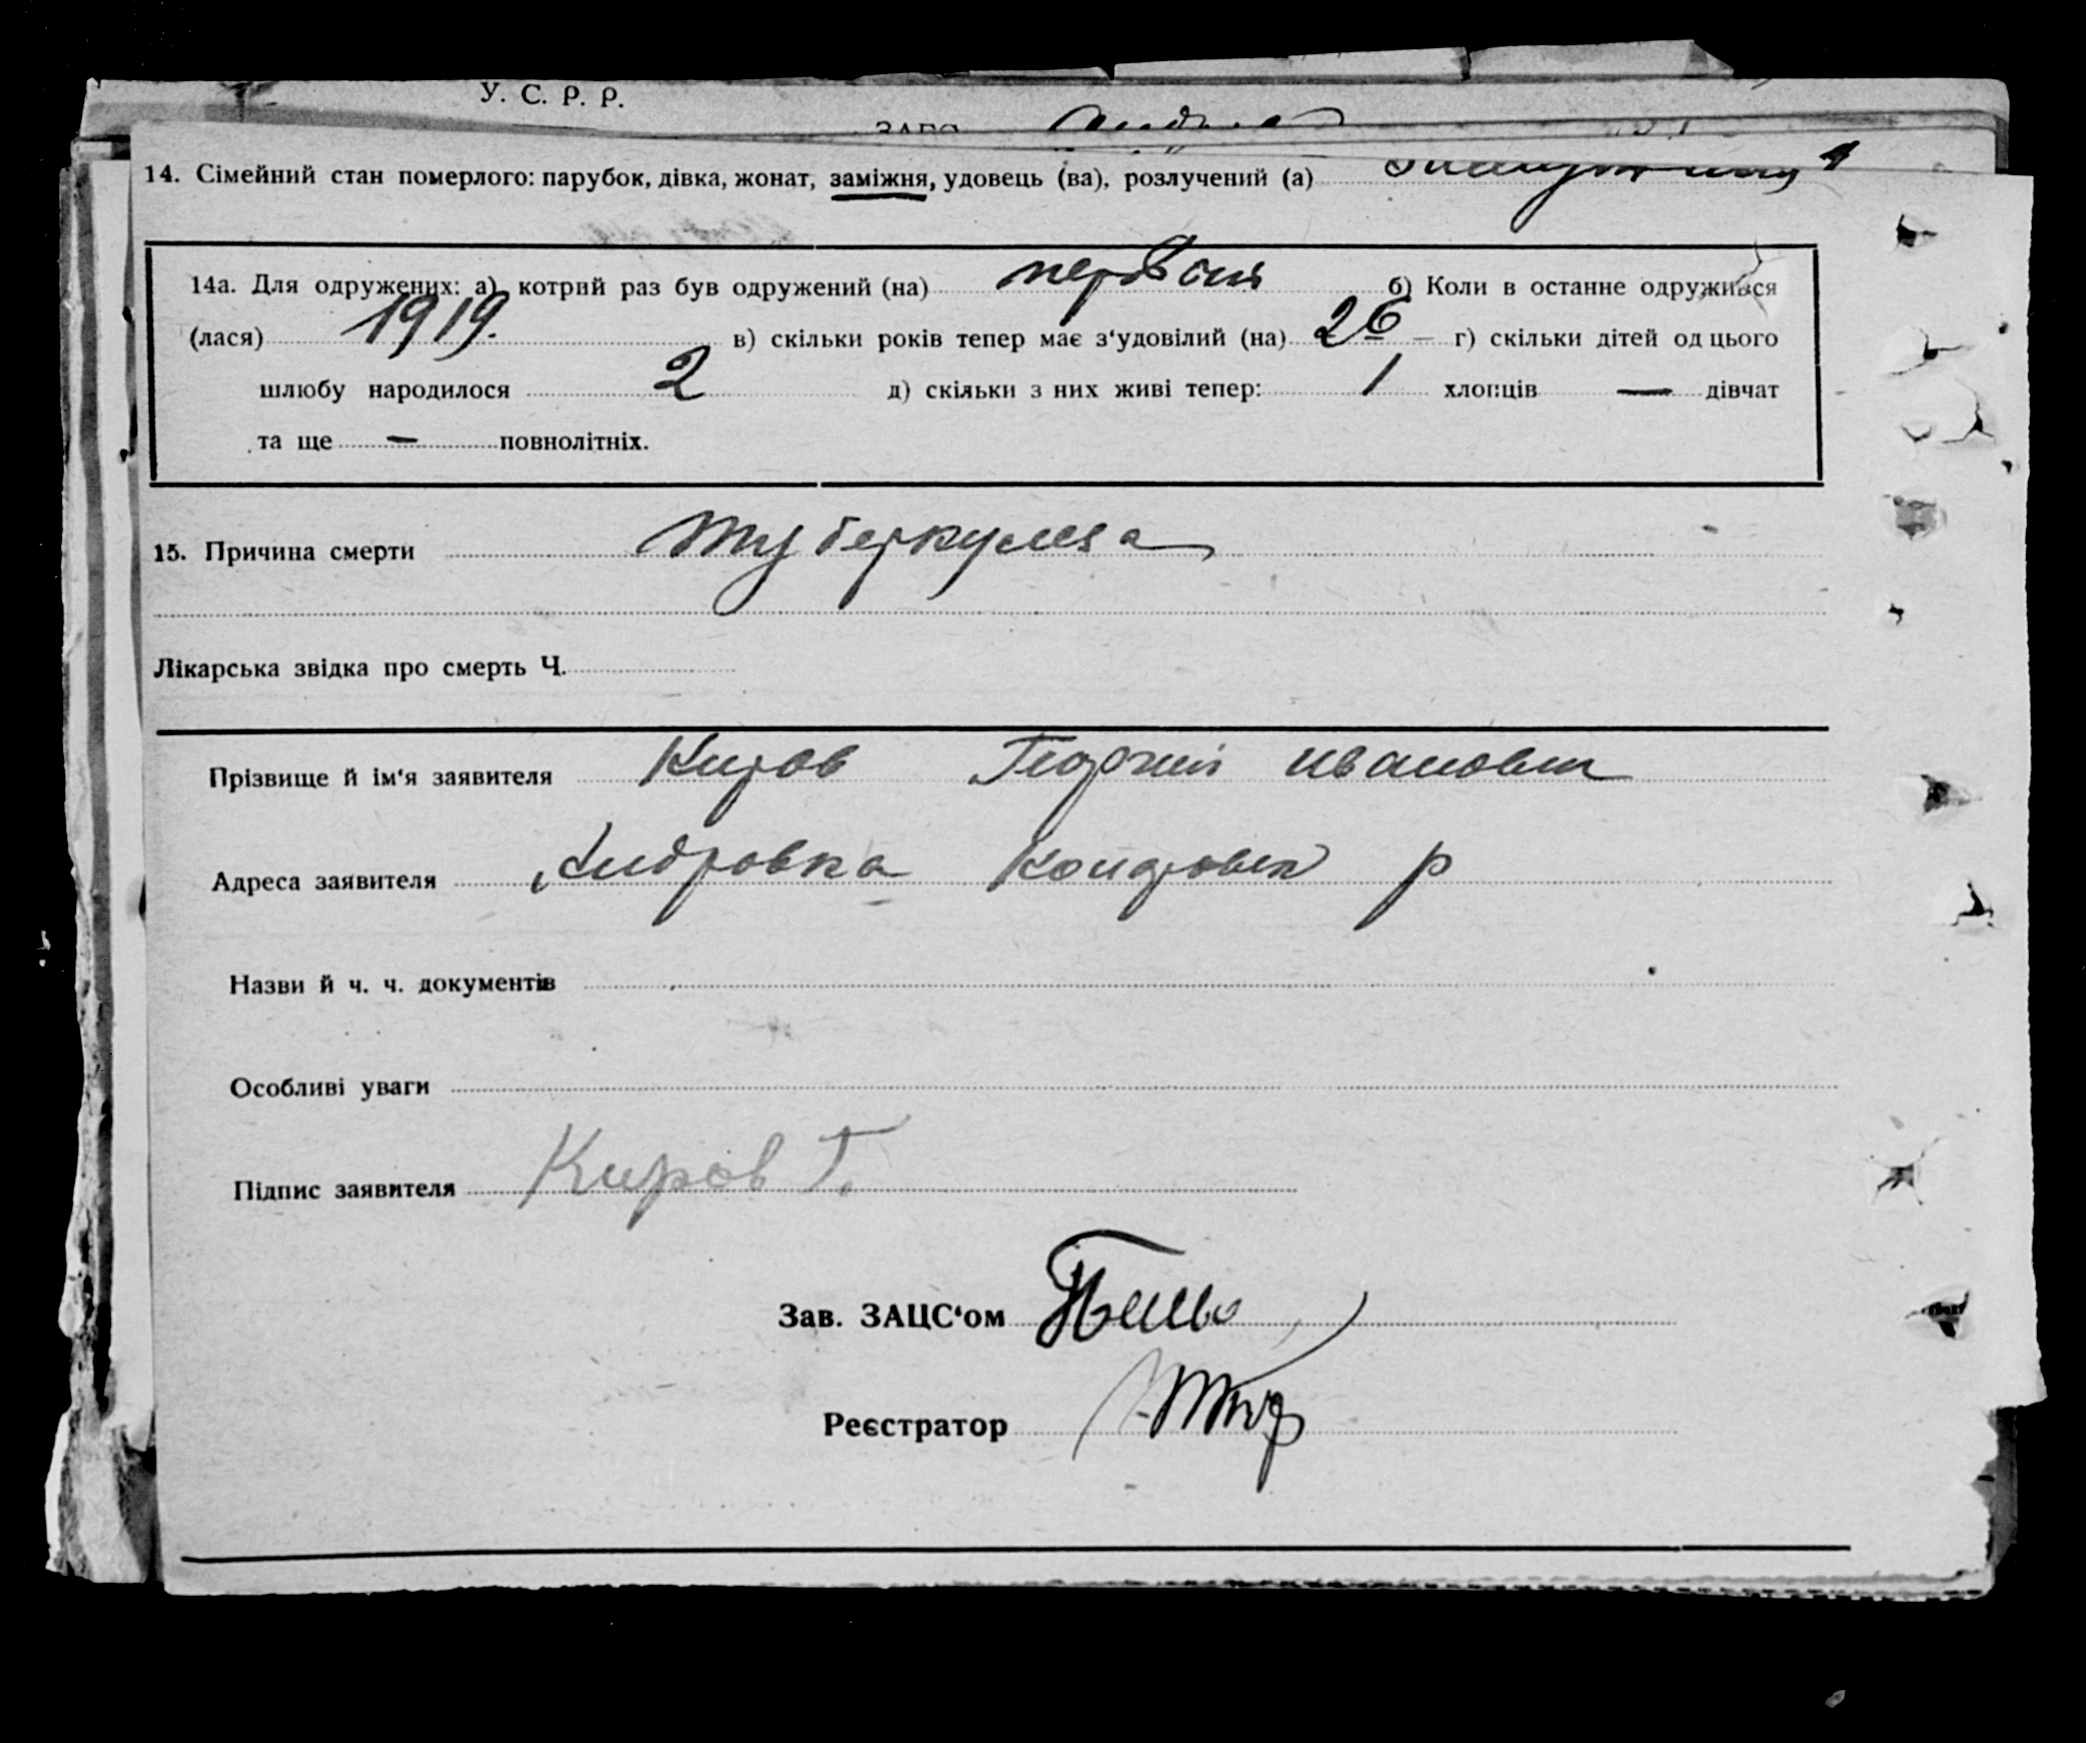 У. С. Р. Р.
14. Сімейний стан померлого: парубок, дівка, жонат, заміжня, удовець (ва), розлучений (а)
14а. Для одружених: а) котрий раз був одружений (на) первый б) Коли в останнє одружився
(лася) 1919. в) скільки років тепер має з‘удовілий (на) 26 — г) скільки дітей од цього
шлюбу народилося 2 д) скільки з них живі тепер: 1 хлопців — дівчат
та ще — повнолітніх.
15. Причина смерти туберкулеза
Лікарська звідка про смерть Ч.
Прізвище й ім‘я заявителя Киров Георгий Иванович
Адреса заявителя р
Назви й ч. ч. документів
Особливі уваги
Підпис заявителя Киров Г.
Зав. ЗАЦС‘ом
Реєстратор